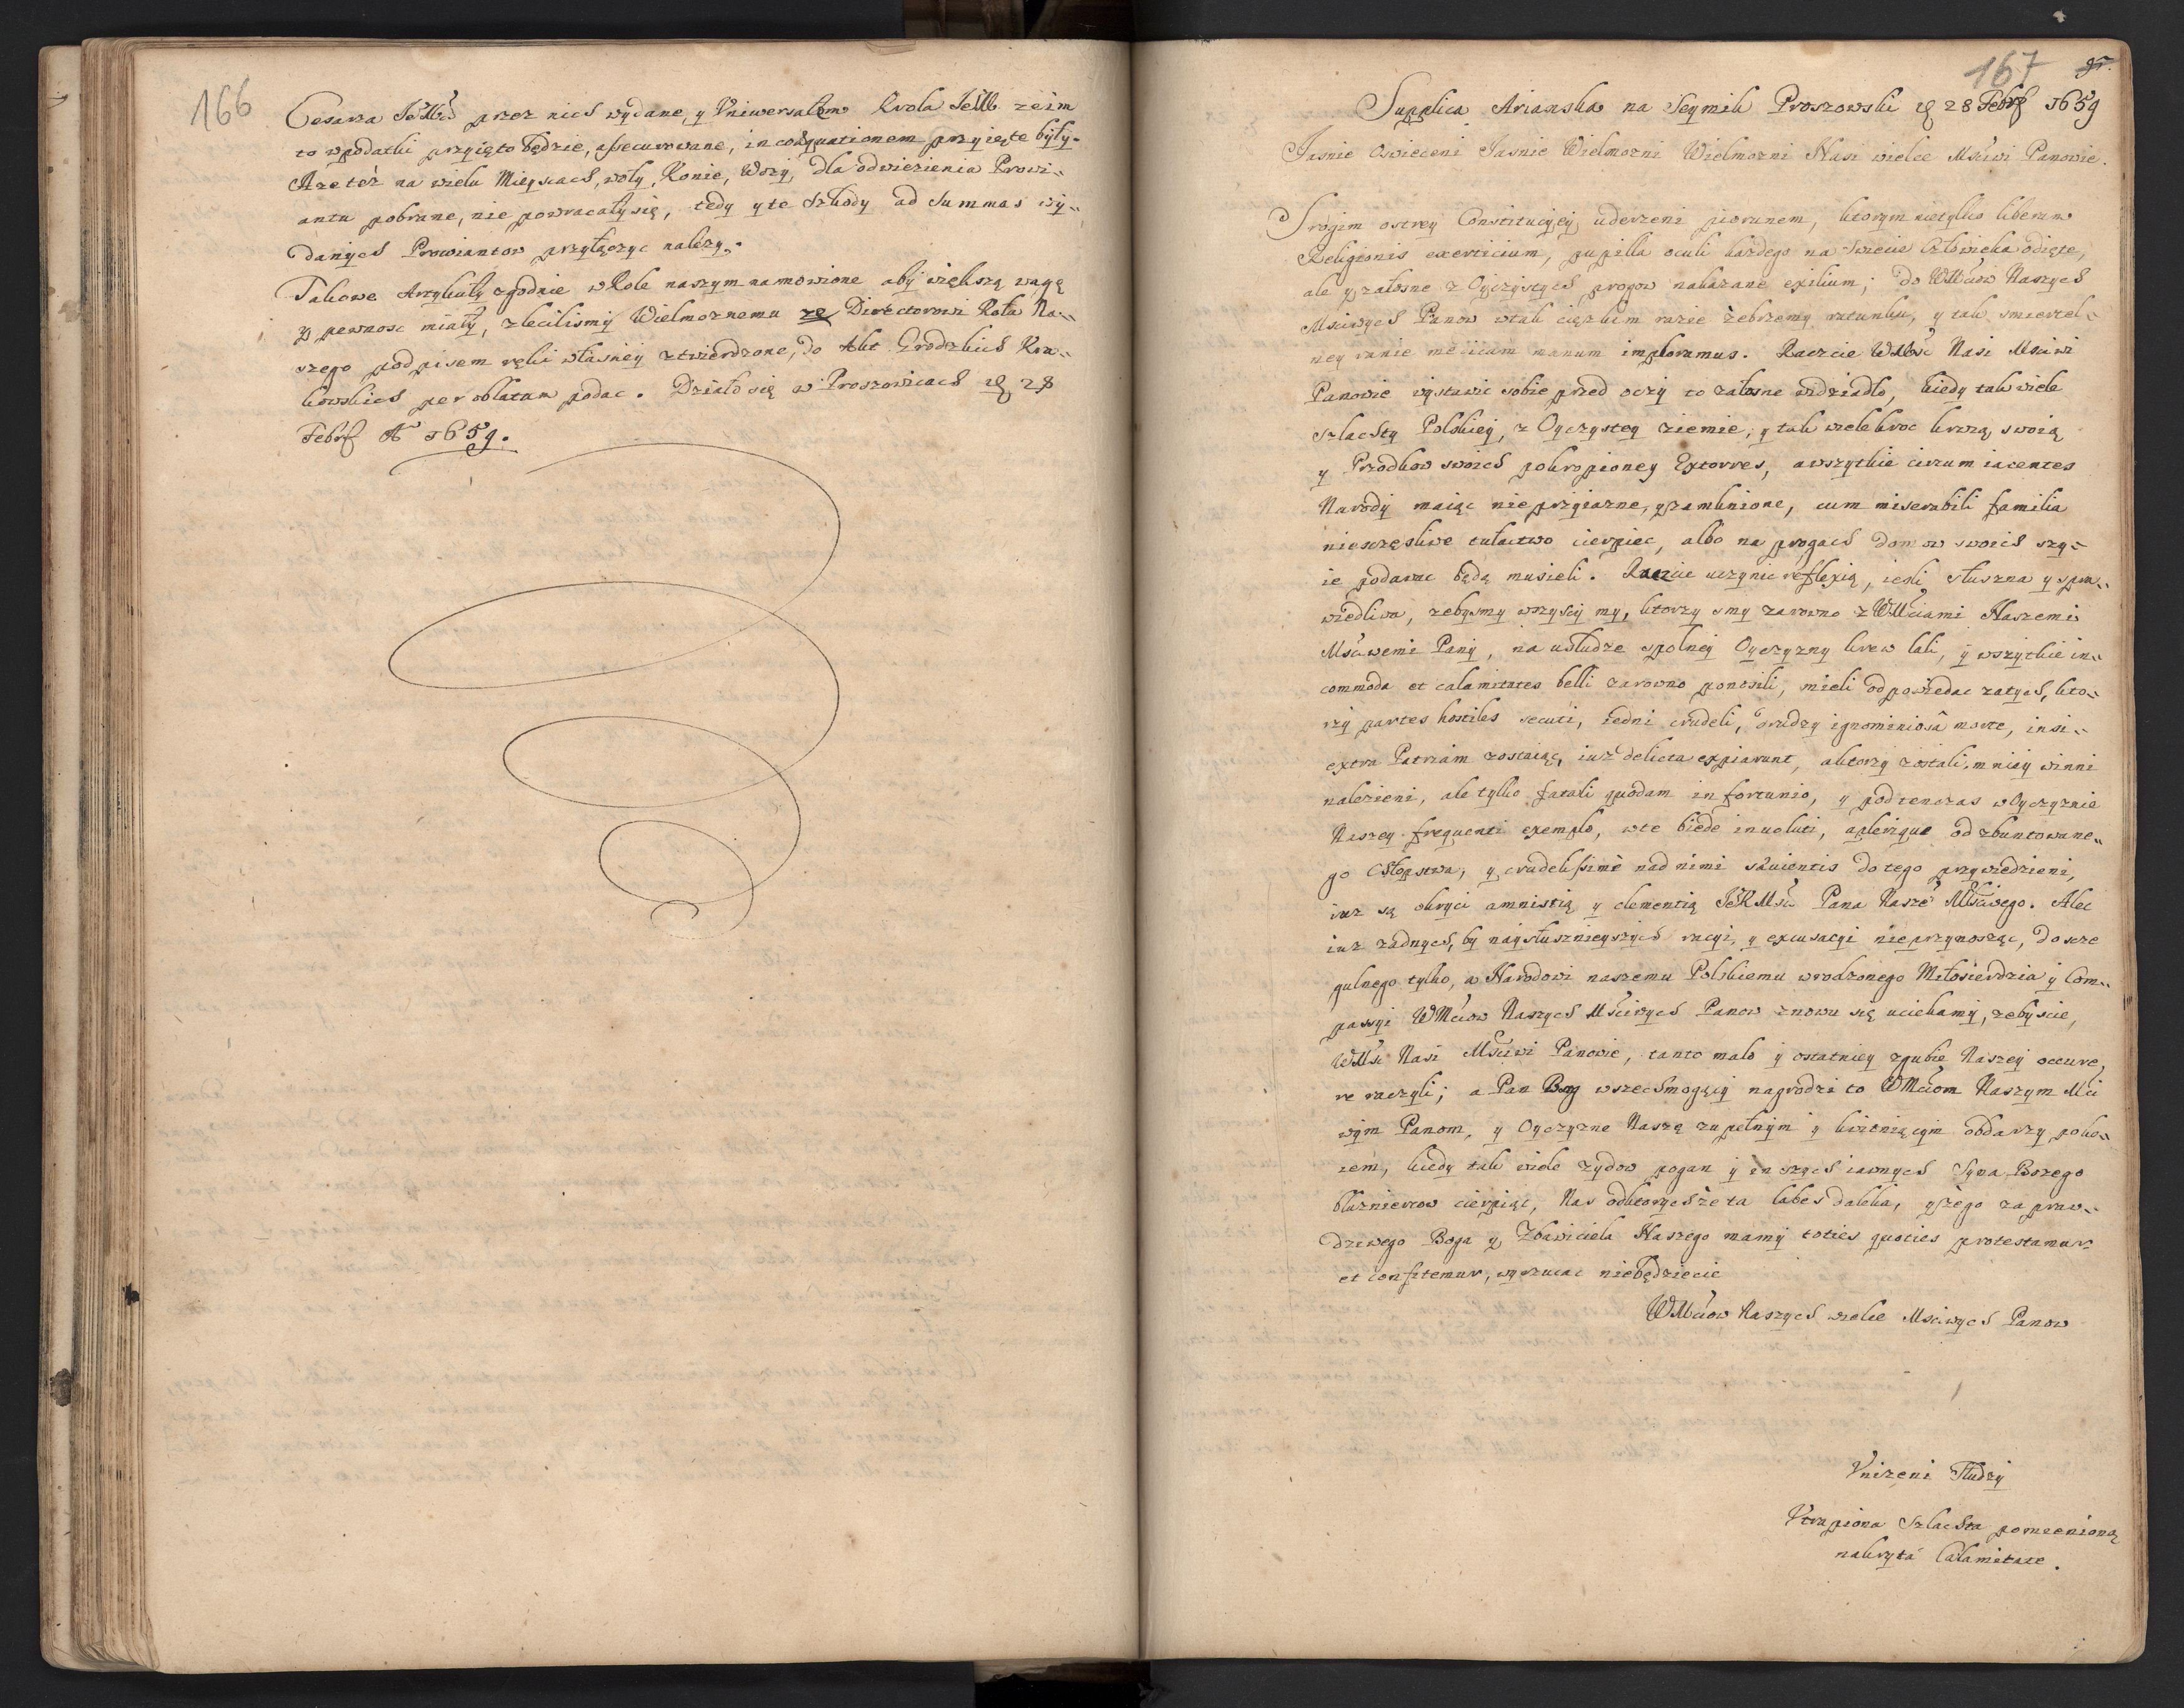 166
Cesarza JeMći przez nich wydane, y Vniwersałem Krola JeMći ze im
to w podatki przyięto będzie, assecurowane, in coæquationem przyięte były.
Aze też na wielu Mieyscach, woły, Konie, Wozy, dla odwiezienia Prowi-
antu pobrane, nie powracały się, tedy y te Szkody ad Summas wy-
danych Prowiantow przyłączyc nalezy.
Takowe Artykuły zgodnie w Kole naszym namowione aby większą wagę
y pewnosc miały, zlecilismy Wielmoznemu Directorowi Koła Na-
szego podpisem ręki własney ztwierdzone, do Akt Grodzkich Kra-
kowskich per oblatam podac. Działo się w Proszowicach d 28
Febr A 1659.
167
Supplica Arianska na Seymik Proszowski d 28 Febr 1659
Jasnie Oswieceni Jasnie Wielmozni Wielmozni Nasi wielce Mściwi Panowie.
Srogim ostrey Constitucyey uderzeni piorunem, ktorym nietylko liberum
Religionis exerticium, pupilla oculi kazdego na Swiecie Człowieka odięte,
ale y załosne z Oyczystych progow nakazane exilium; do WMciow Naszych
Mściwych Panow w tak cięzkim razie żebrzemy ratunku, y tak smiertel-
ney ranie medicam manum imploramus. Raczcie WMośc Nasi Msciwi
Panowie wystawic sobie przed oczy to załosne widziadło, kiedy tak wiele
Szlachty Polskiey, z Oyczystey ziemie, y tak wielekroc krwią swoią
y Przodkow swoich pokropioney Extorres, a wszytkie circum iacentes
Narody maiąc nieprzyiazne, y zamknione, cum miserabili familia
nieszczęsliwe tułactwo cierpiec, albo na progach domow swoich szy-
ie podawac będą musieli. Raczcie uczynic reflexią, iesli słuszna y spra-
wiedliwa, zebysmy wszyscy my, ktorzy smy zarowno z WMciami Naszemi
Mściwemi Pany, na usłudze spolney Oyczyzny krew lali, y wszytkie in-
commoda et calamitates belli zarowno ponosili, mieli odpowiedac zatych, kto-
rzy partes hostiles secuti, iedni crudeli, drudzy ignominiosâ morte, insi
extra Patriam zostaiąc, iuz delicta expiarunt, a ktorzy zostali mniey winni
nalezieni, ale tylko fatali quodam infortunio, y podtenczas w Oyczyznie
Naszey frequenti exemplo, w te biede inuoluti, a plerique od zbuntowane-
go Chłopstwa, y crudelissimè nad nimi sæuientis do tego przywiedzieni,
iuz są okryci amnistią y clementią JeKMsci Pana Nasze Mściwego. Alec
iuz zadnych, by naysłusznieyszych racyi, y excusacyi nieprzynosząc, do szcze
gulnego tylko, a Narodowi naszemu Polskiemu wrodzonego Miłosierdzia y Com-
passyi WMciow Naszych Msciwych Panow znowu się uciekamy, zebyscie,
WMśc Nasi Mściwi Panowie, tanto malo y ostatniey zgubie Naszey occure,
re raczyli; a Pan Bog wszechmogący nagrodzi to WMciom Naszym Mści
wym Panom, y Oyczyzne Naszą zupełnym y kwitniącym obdarzy poko-
iem, kiedy tak wiele zydow pogan y inszych iawnych Syna Bozego
bluzniercow cierpiąc, Nas od ktorych że ta labes daleka, y iego za praw-
dziwego Boga y Zbawiciela Naszego mamy toties quoties protestamur
et confitemur, wyrzucac niebędziecie
WMciow Naszych wielce Msciwych Panow
Vnizeni Słudzy
Vtrapiona Szlachta pomienioną
nakryta Calamitate.